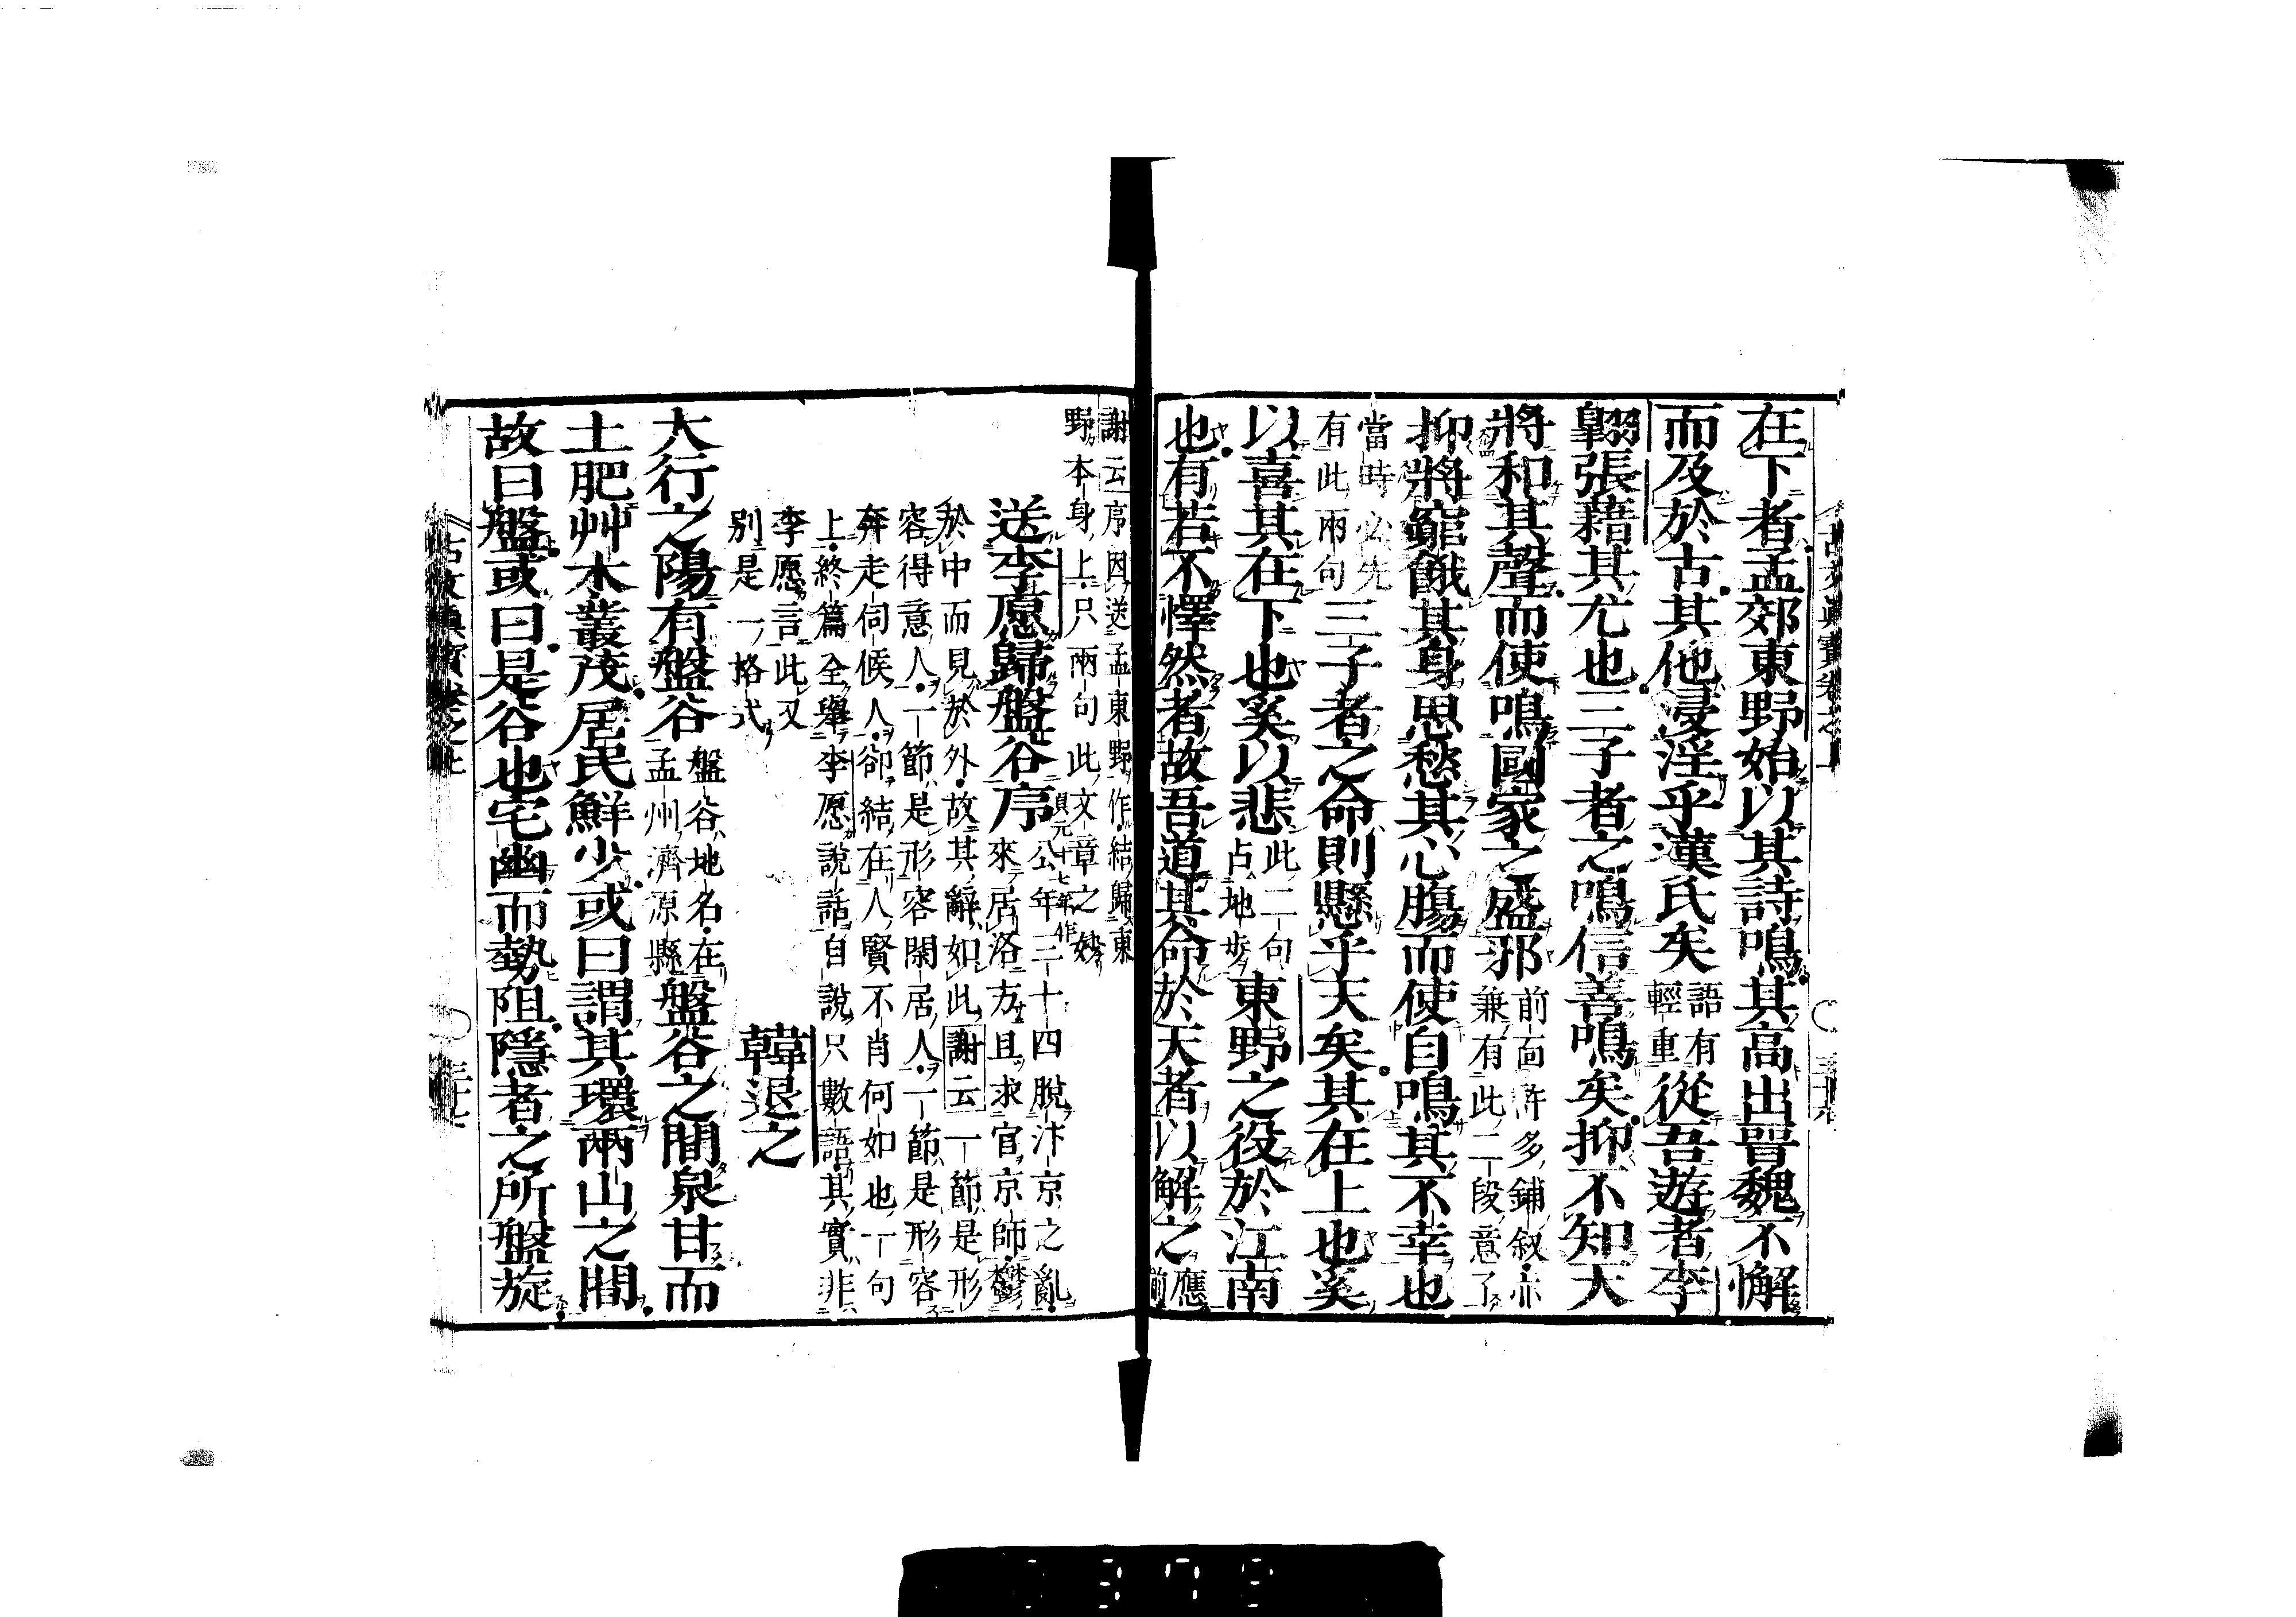 在下者孟郊東野始以其詩鳴其高出晉魏不懈
而及於古其他浸淫乎漢氏矣語有輕重從吾遊者李
翺張藉其尤也三子者之鳴信善鳴矣抑不知天
將和其聲而使鳴國家之盛邪前面許多鋪叙亦兼有此二段意了
抑將窮餓其身思愁其心腸而使自鳴其不幸也
當時必先有此兩句三子者之命則懸乎天矣其在上也奚
以喜其在下也奚以悲此二句占地步東野之役於江南
也有若不懌然者故吾道其命於天者以解之應前
謝云序因送孟東野作結歸東
野本身上只兩句此文章之妙
送李愿歸盤谷序貞元十七年作公年三十四脫汴京之亂
來居洛方且求官京師鬱
於中而見於外故其辭如此謝云一節是形
容得意人一節是形容閑居人一節是形容
奔走伺候人卻結在人賢不肖何如也一句
上終篇全舉李愿說話自說只數語其實非
李愿言此又
別是一格式
韓退之
大行之陽有盤谷盤谷地名在孟州濟源縣盤谷之間泉甘而
土肥艸木叢茂居民鮮少或曰謂其環兩山之間
故曰盤或曰是谷也宅幽而勢阻隱者之所盤旋
古文真寶卷之上
三十七